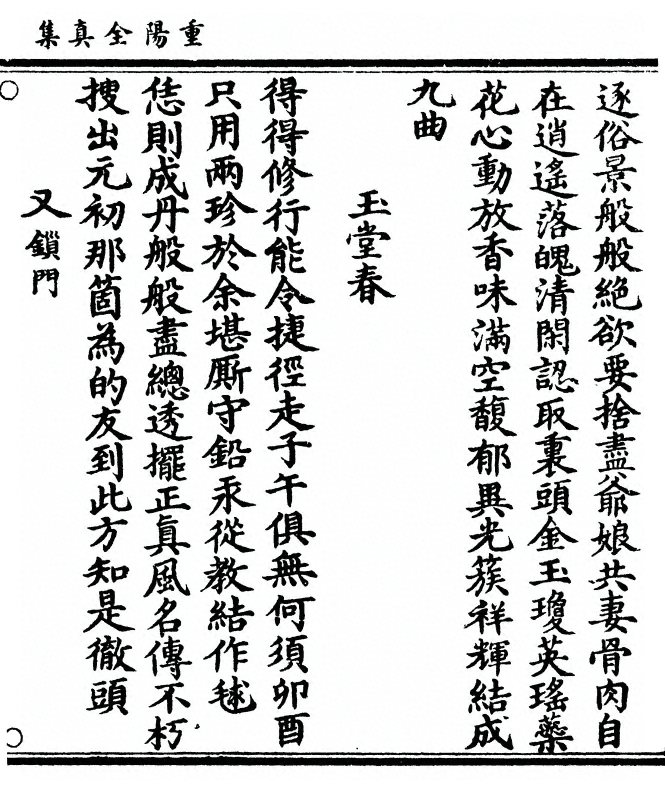 重陽全真集
逐俗景般般絶欲要捨盡爺娘共妻骨肉自
在逍遙落魄清閑認取裏頭金玉瓊英瑤蘂
花心動放香味滿空馥郁異光簇祥輝結成
九曲
玉堂春
得得修行能令捷徑走子午俱無何須卯酉
只用兩珍於余堪厮守鉛汞從教結作毬
恁則成丹般般盡總透擺正眞風名傳不朽
搜出元初那箇為的友到此方知是徹頭
又鎖門